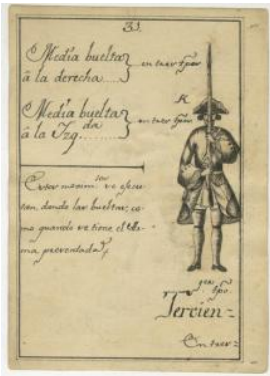 31.
Media buelta
â la derecha..... } en tres tpos
Media buelta
â la Izqda........ } en tres tpos
K
Estos movimtos se efecu-
tan, dando las bueltas, co-
mo quando se tiene el Ar-
ma presentada,
tpo.
Tercien=
En tres=